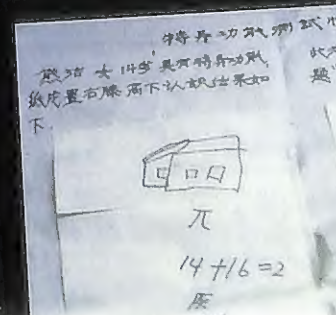 特异功能测试
熊洁 女 14岁 具有特异功能,
纸
置右腋而下认识结果如
下
π
14+16=2